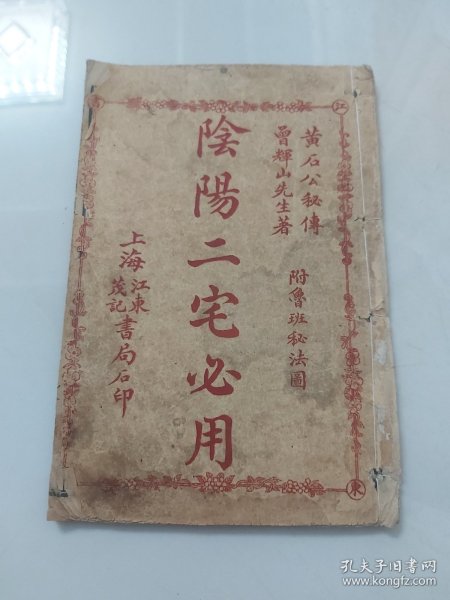 黃石公秘傳
曾輝山先生著
附魯班秘法圖
陰陽二宅必用
上海江東茂記書局石印
江
東
孔夫子旧书网
www.kongfz.com